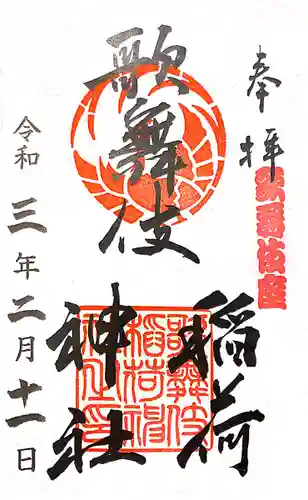 奉拝
歌舞伎座
歌舞伎
稲荷
神社
歌舞伎
稲荷神
社之印
令和三年二月十一日